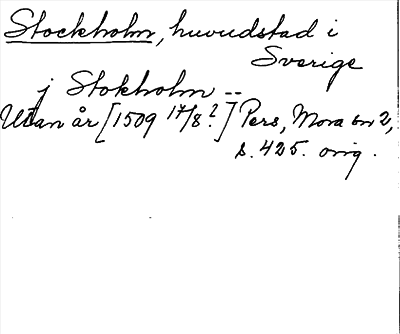 Stockholm, huvudstad i
Sverige
j Stokholm --
Utan år [1509 17/8?] Pers, Mora bn 2,
s. 425. orig.